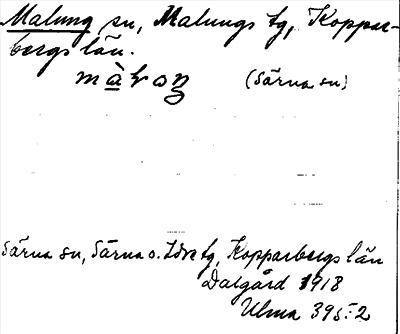 Malung sn, Malungs tg, Koppar-
bergs län.
(Särna sn)
Särna sn, Särna o. Idre tg, Kopparbergs län
Dalgård 1918
Ulma 395:2